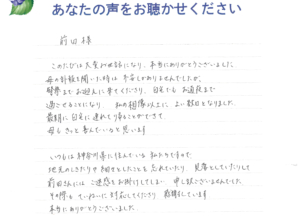 あなたの声をお聴かせください
前田様
このたびは大変お世話になり、本当にありがとうございました。
母の訃報を聞いた時は
お迎えに来てくださり、自宅でもお通夜まで
過ごせることになり、私の想像以上に、よい数日となりました。
最期に自宅に連れて帰ることができて
母もきっと喜んでいると思います
いつもは神奈川県に住んでいる私たちですので、
地元のしきたりや細々としたことも忘れていたり、見落としていたりして
前田さんにはご迷惑をお掛けしてしまい、申し訳ございませんでした。
その際も、ていねいに対応してくださり、感謝しています
本当にありがとうございました。